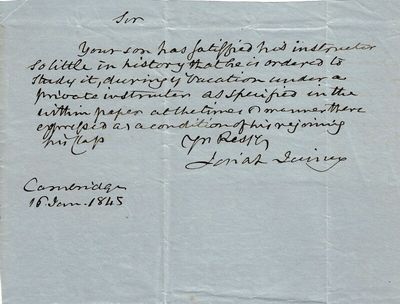 Sir
Your son has satisfied his instructor
so little in history that he is ordered to
study it, during ye vacation under a
private instructer as specified in the
within paper at the times & manner there
expressed as a condition of his rejoining
his Class
Yr Respy
Josiah Quincy
Cambridge
16 Jan. 1845